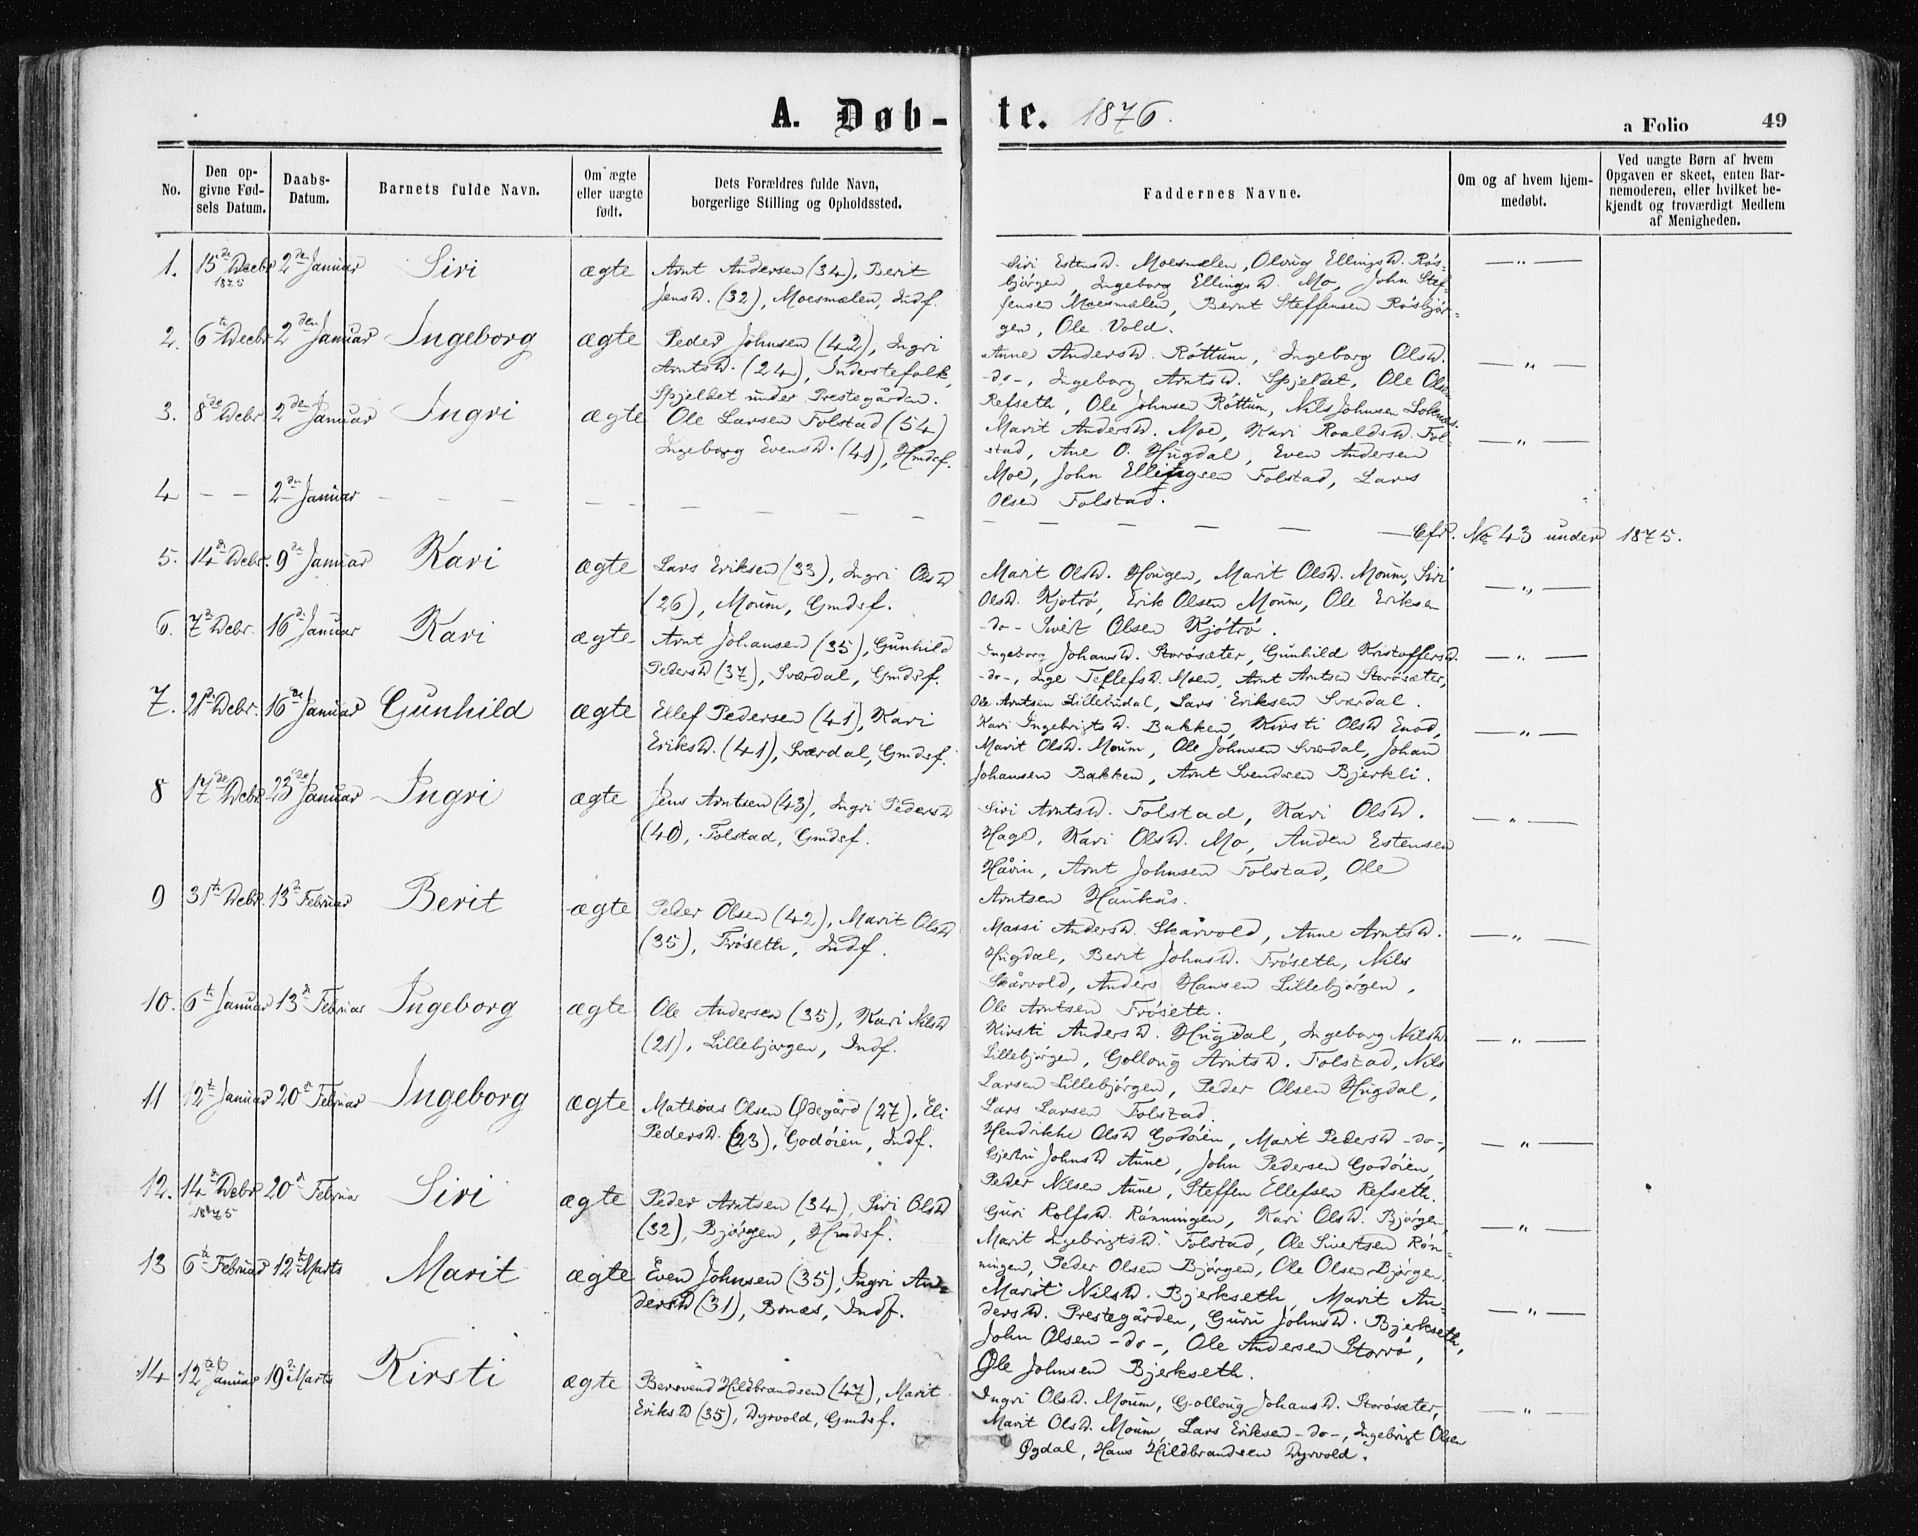 A. Døb-te. 1876.
a Folio 49
No.
Den opgivne Fødsels Datum.
Daabs-Datum.
Barnets fulde Navn.
Om ægte eller uægte født.
Dets Forældres fulde Navn, borgerlige Stilling og Opholdssted.
Faddernes Navne.
Om og af hvem hjemmedøbt.
Ved uægte Børn af hvem Opgaven er skeet, enten Barnemoderen, eller hvilket bekjendt og troværdigt Medlem af Menigheden.
1. 15de Decbr 1875 2den Januar Siri ægte
Arnt Andersen (34), Berit
Jensd. (32), Moesmælen, Indf.
Siri Estensd. Moesmælen, Olvug Ellingsd. Røs-
bjørgen, Ingeborg Ellingsd. Mo, John Stef-
fensen Moesmælen, Bernt Steffensen Røsbjør-
gen, Ole Vold.
— „ —
2. 6te Decbr 2den Januar Ingeborg ægte
Peder Johnsen (42), Ingri
Arntsd. (24), Inderstefolk,
Spjeldet under Prestegården.
Anne Andersd. Röttum, Ingeborg Olsd.
-do-, Ingeborg Arntsd. Spjeldet, Ole Olsen
Refseth, Ole Johnsen Röttum, Nils Johnsen
— „ —
3. 8de Debr. 2den Januar Ingri ægte
Ole Larsen Folstad (54)
Ingeborg Evensd. (41), Hmdsf.
Marit Andersd. Moe, Kari Roaldsd. Fol-
stad, Ane O. Hugdal, Even Andersen
Moe, John Ellingsen Folstad, Lars
Olsen Folstad.
— „ —
4 — — 2den Januar — — —
— — — Cfr. No 43 under 1875.
5. 14de Debr. 9de Januar Kari ægte
Lars Eriksen (33), Ingri Olsd
(26), Moum, Gmdsf.
Marit Olsd. Hougen, Marit Olsd. Moum, Siri
Olsd. Kjotrø, Erik Olsen Moum, Ole Eriksen
-do- Sivert Olsen Kjøtrø.
— „ —
6. 7de Debr. 16de Januar Kari ægte
Arnt Johansen (35), Gunhild
Pedersd (37), Sværdal, Gmdsf.
Ingeborg Johansd. Storøsæter, Gunhild Kristoffersd.
-do-, Inge Teflefsd. Moen, Arnt Arntsen Storøsæter,
Ole Arntsen Lillebudal, Lars Eriksen Sværdal.
— „ —
7. 21de Debr. 16de Januar Gunhild ægte
Ellef Pedersen (41), Kari
Eriksd. (41), Sværdal, Gmdsf.
Kari Ingebrigtsd. Bakken, Kirsti Olsd Enod,
Marit Olsd. Moum, Ole Johnsen Sværdal, Johan
Johansen Bakken, Arnt Svendsen Bjerkli.
— „ —
8 17de Debr. 23de Januar Ingri ægte
Jens Arntsen (43), Ingri Pedersd
(40), Folstad, Gmdsf.
Siri Arntsd. Folstad, Kari Olsd.
Hage, Kari Olsd. Mo, Anden Estensen
Håvin, Arnt Johnsen Folstad, Ole
Arntsen Haukås.
— „ —
9 31te Debr. 13de Februar Berit ægte
Peder Olsen (42), Marit Olsd
(35), Frøseth, Indf.
Massi Andersd. Skårvold, Anne Arntsd.
Hugdal, Berit Johnsd. Frøseth, Nils
Skårvold, Anders Hansen Lillebjørgen,
Ole Arntsen Frøseth.
— „ —
10. 6te Januar 13de Februar Ingeborg ægte
Ole Andersen (35), Kari Nilsd
(21), Lillebjørgen, Indf.
Kirsti Andersd. Hugdal, Ingeborg Nilsd.
Lillebjørgen, Golloug Arntsd. Folstad, Nils
Larsen Lillebjørgen, Peder Olsen Hugdal,
Lars Larsen Folstad.
— „ —
11 12te Januar 20de Februar Ingeborg ægte
Mathias Olsen Ødegård (27), Eli
Pedersd. (23), Godøien, Indf.
Hendrikke Olsd Godøien, Marit Pedersd -do-,
Gjertru Johnsd Aune, John Pedersen Godøien,
Peder Nilsen Aune, Steffen Ellefsen Refseth.
— „ —
12. 14de Debr 1875 20de Februar Siri ægte
Peder Arntsen (34), Siri Olsd
(32), Bjørgen, Hmdsf.
Guri Rolfsd. Rønningen, Kari Olsd. Bjørgen,
Marit Ingebrigtsd. Folstad, Ole Sivertsen Røn-
ningen, Peder Olsen Bjørgen, Ole Olsen Bjørgen.
— „ —
13 6te Februar 12te Marts Marit ægte
Even Johnsen (35), Ingri An-
dersd (31), Bonæs, Indf.
Marit Nilsd. Bjerkseth, Marit An-
dersd. Prestegården, Guru Johnsd. Bjerkseth,
John Olsen -do-, Ole Andersen Storrø,
Ole Johnsen Bjerkseth.
— „ —
14 12te Januar 19de Marts Kirsti ægte
Bersvend Hildbrandsen (47), Marit
Eriksd (35), Dyrvold, Gmdsf.
Ingri Olsd. Moum, Golloug Johansd. Storøsæter,
Marit Olsd. Moum, Lars Eriksen -do-, Ingebrigt Olsen
Øgdal, Hans Hildbrandsen Dyrvold.
— „ —